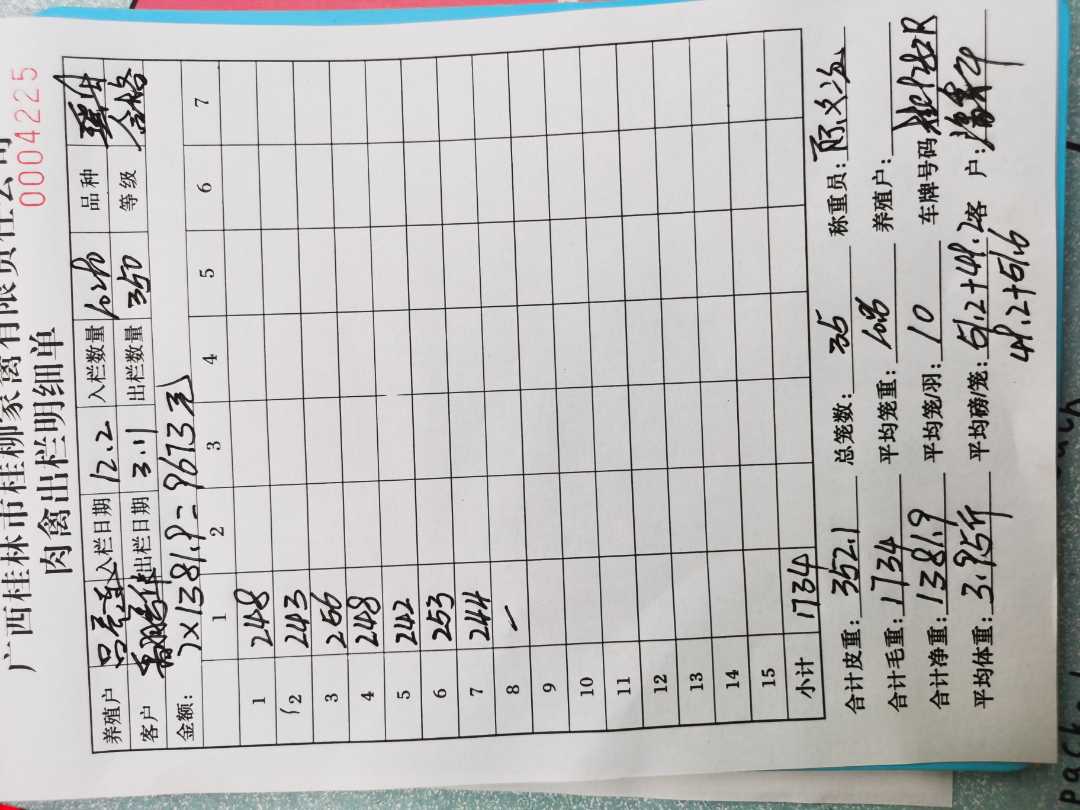 广西桂林市桂柳家禽有限责任公司
肉禽出栏明细单
0004225
养殖户 入栏日期 12.2 入栏数量 品种
客户 出栏日期 3.11 出栏数量 350 等级 合格
金额: 7×1381.9=9673元
1 2 3 4 5 6 7
1 248
2 243
3 256
4 248
5 242
6 253
7 244
8
9
10
11
12
13
14
15
小计 1734
合计皮重: 352.1 总笼数: 35 称重员:
合计毛重: 1734 平均笼重: 养殖户:
合计净重: 1381.9 平均笼/羽: 10 车牌号码
平均体重: 3.95斤 平均磅/笼: 51.2+49.2 客户:
49.2+51.6